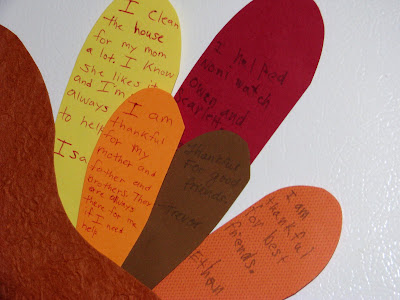 I clean
the house
for my mom
a lot. I know
she likes it
and I'm
always
to help
Isa
I helped
Noni watch
Owen and
I am
thankful
for my
mother and
father and
brothers. They
are always
there for me
if I need
help
thankful
For good
friends.
Trevor
I am
thankful
for best
friends.
Ethan